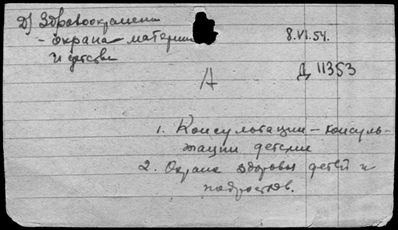 Д) Здравоохранени
- охрана материн
и детства
8.VI.54.
Д 11353
А
1. Консультации - консуль-
тации детские
2. Охрана здоровья детей и
подростков.